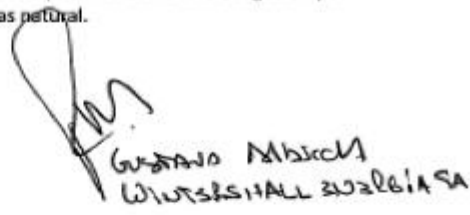 as natural.
GUSTAVO Albrecht
WINTERSHALL ENERGÍA SA